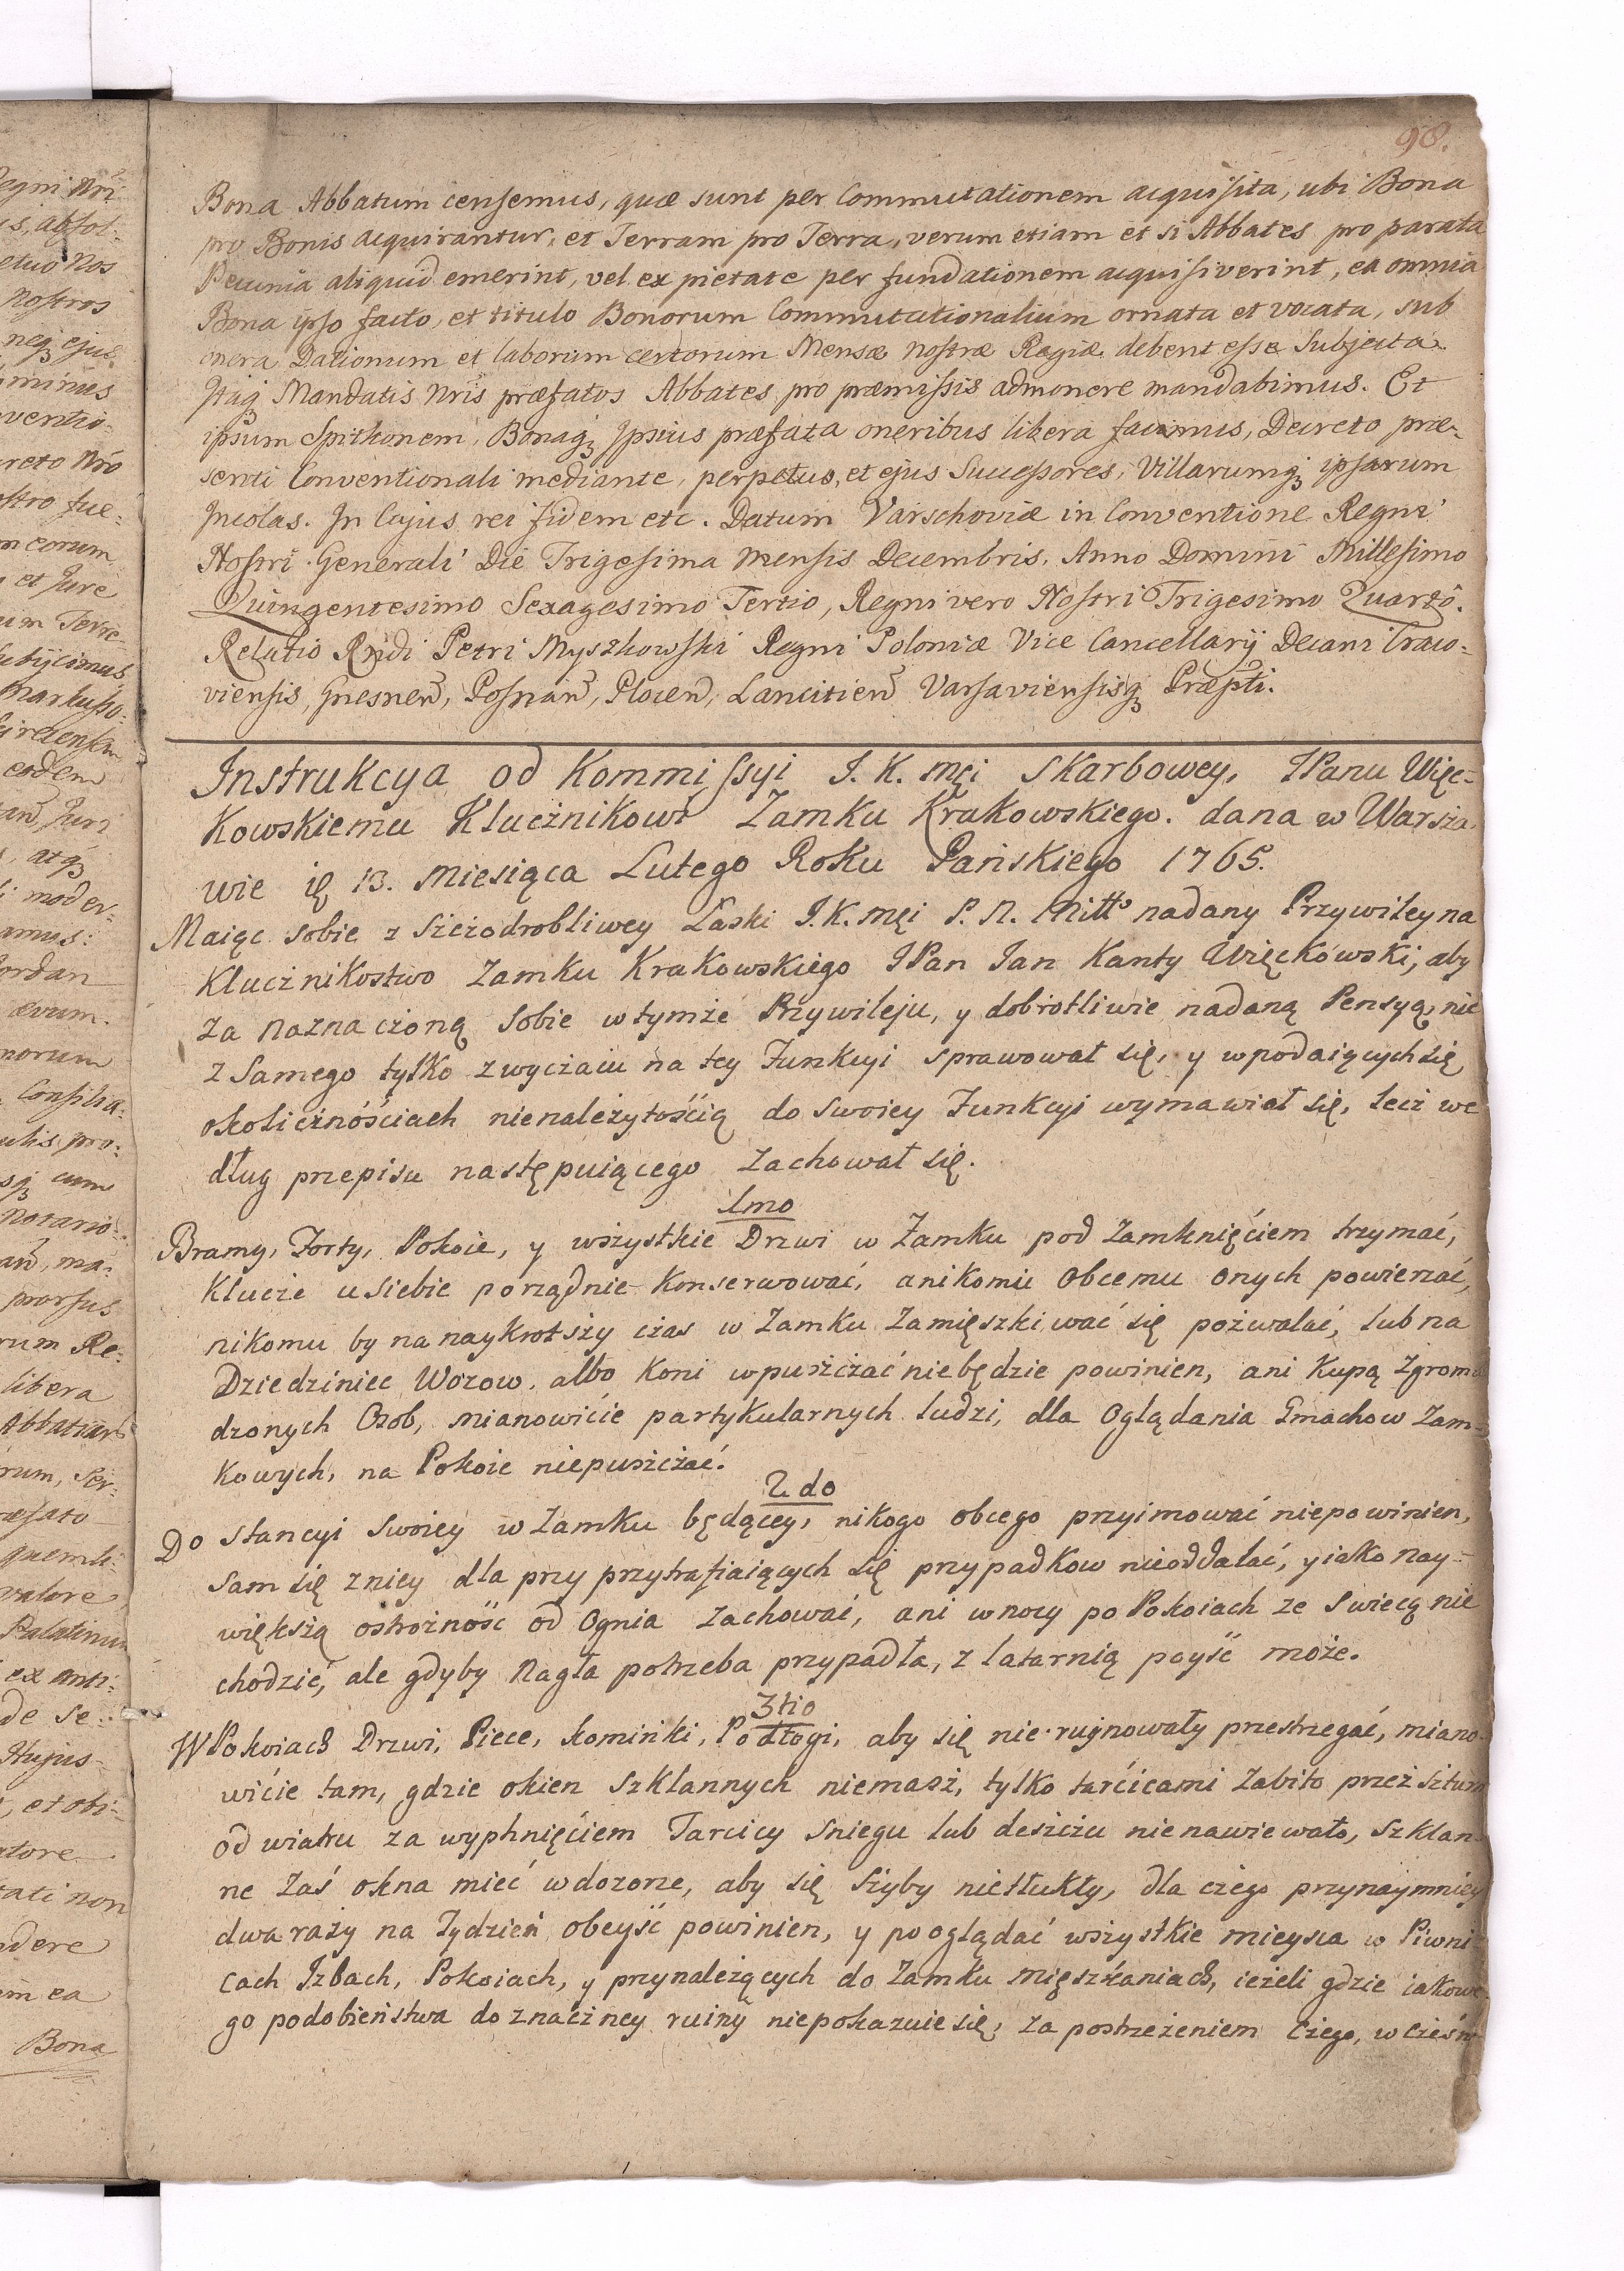 98.
Bona Abbatum censemus, quæ sunt per Commutationem acquisita, ubi Bona
pro Bonis acquirantur, et Terram pro Terra, verum etiam et si Abbates pro parata
Pecunia aliquid emerint, vel ex pietate per fundationem acquisiverint, ea omnia
Bona ipso facto, et titulo Bonorum Commutationalium ornata et vocata, sub
onera Dationum et laborum certorum Mensæ Nostræ Regiæ debent esse Subjecta.
Itaq Mandatis Nris præfatos Abbates pro præmissis admonere mandabimus. Et
ipsum Spithonem, Bonaq Ipsius præfata oneribus libera facimus, Decreto præ-
senti Conventionali mediante, perpetuo, et ejus Successores, Villarumq ipsarum
Incolas. In Cujus rei fidem etc. Datum Varschoviæ in Conventione Regni
Nostri Generali Die Trigesima Mensis Decembris. Anno Domini Millesimo
Quingentesimo Sexagesimo Tertio, Regni vero Nostri Trigesimo Quarto.
Relatio Rndi Petri Myszkowski Regni Poloniæ Vice Cancellarij Decani Craco-
viensis, Gnesnen, Posnan, Plocen, Lancitien Varsaviensisq Præpti.
Instrukcya od Kommissyi J. K. Mći Skarbowey, JPanu Więc-
Kowskiemu Klucznikowi Zamku Krakowskiego. dana w Warsza-
wie ię 13. Miesiąca Lutego Roku Pańskiego 1765.
Maiąc sobie z Szczodrobliwey Łaski J. K. Mći P. N. Mitto nadany Przywiley na
Klucznikostwo Zamku Krakowskiego JPan Jan Kanty Więckowski, aby
za naznaczoną sobie w tymże Przywileju, y dobrotliwie nadaną Pensyą, nie
z Samego tylko zwyczaiu na tey Funkcyi sprawował się, y w podaiących się
okolicznościach nienależytością do swoiey Funkcyi wymawiał się, lecz we
dług przepisu następuiącego zachował się.
1mo
Bramy, Forty, Pokoie, y wszystkie Drzwi w Zamku pod Zamknięciem trzymać,
Klucze u siebie porządnie Konserwować, ani komu Obcemu onych powierzać,
nikomu by na naykrotszy czas w Zamku Zamięszkiwać się pozwalać, lub na
Dziedziniec Wozow, albo Koni wpuszczać niebędzie powinien, ani Kupą Zgroma
dzonych Osob, mianowicie partykularnych ludzi, dla Oglądania Gmachow Zam-
kowych, na Pokoie niepuszczać.
2do
Do Stancyi Swoiey w Zamku będącey, nikogo obcego przyimować niepowinien,
sam się z niey dla przy przytrafiaiących się przypadkow nieoddalać, y iako nay-
większą ostrożność od Ognia zachować, ani w nocy po Pokoiach ze Swiecą nie
chodzić, ale gdyby nagła potrzeba przypadła, z latarnią poyść może.
3tio
W Pokoiach Drzwi, Piece, Kominki, Podłogi, aby się nie rujnowały przestrzegać, miano-
wicie tam, gdzie okien szklannych niemasz, tylko tarcicami Zabito przez szturm
od wiatru za wyphnięciem Tarcicy sniegu lub deszczu nienawiewało, szklan-
ne zaś okna mieć w dozorze, aby się szyby nietłukły, dla czego przynaymniey
dwa razy na Tydzień obeyść powinien, y pooglądać wszystkie mieysca w Piwni
cach Izbach, Pokoiach, y przynależących do Zamku mięszkaniach, ieżeli gdzie iakowe-
go podobieństwa do znaczney ruiny niepokazuie się, za postrzeżeniem czego, wcześn